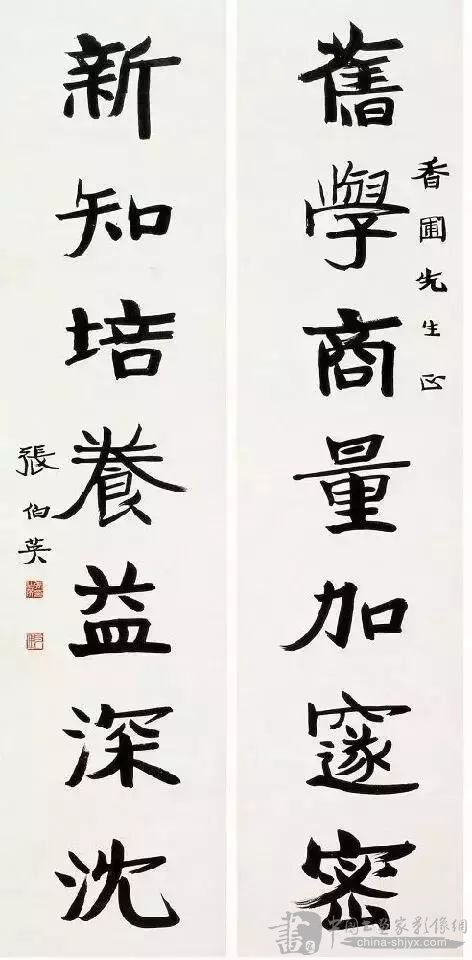 香圃先生正
舊學商量加邃密
新知培養益深沈
張伯英
書 中国书画家影像網
china-shjyx.com